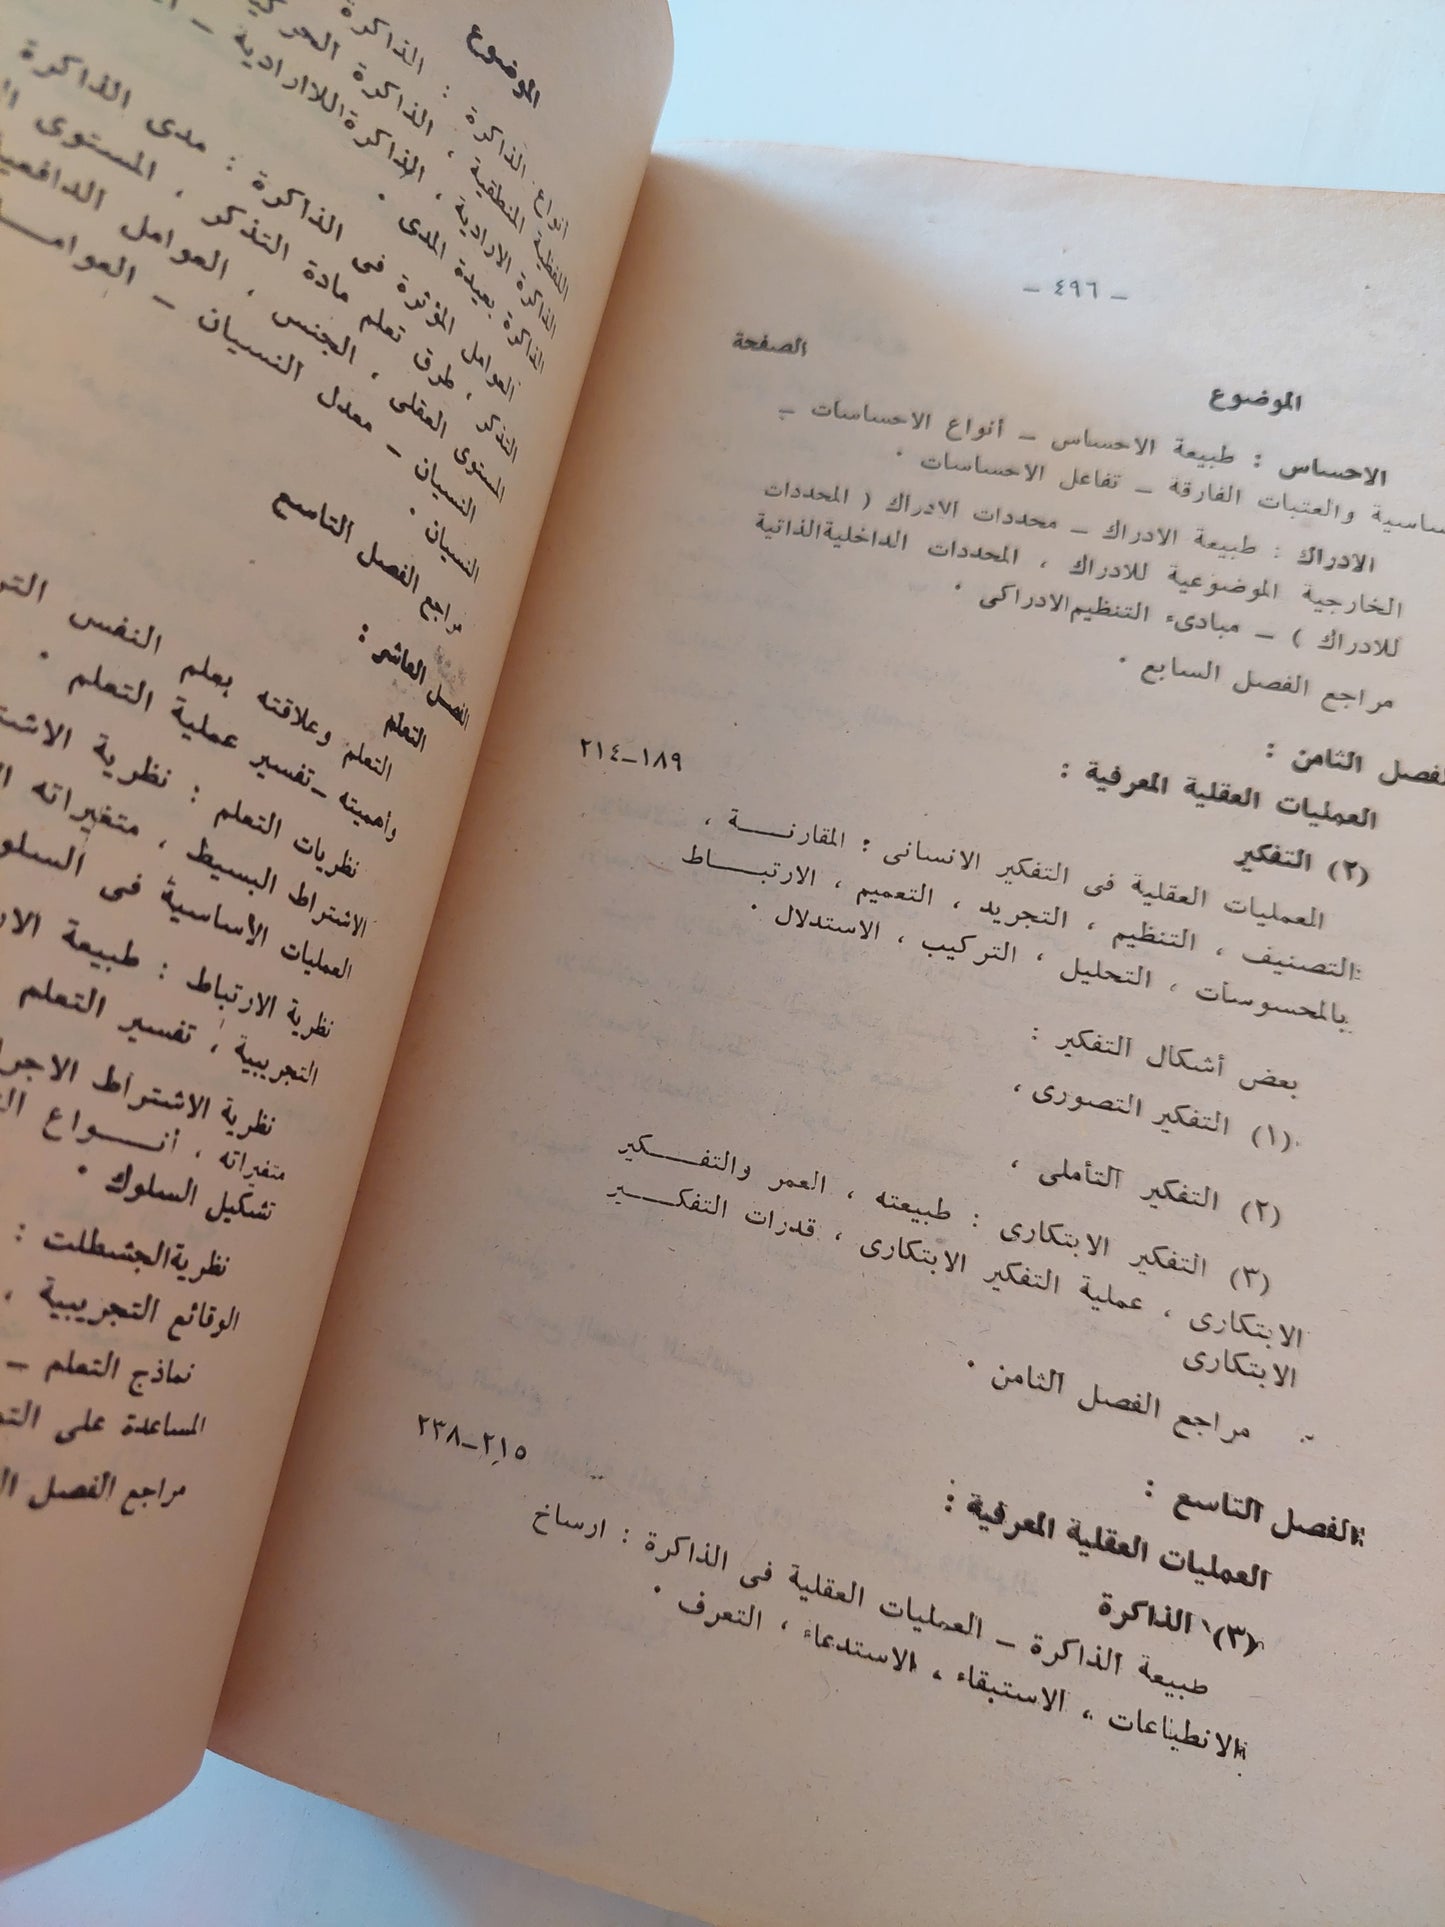 — ٤٩٦ —
الموضوع الصفحة
الاحساس : طبيعة الاحساس — أنواع الاحساسات —
والعتبات الفارقة — تفاعل الاحساسات ٠
الادراك : طبيعة الادراك — محددات الادراك ( المحددات
الخارجية الموضوعية للادراك ، المحددات الداخلية الذاتية
للادراك ) — مبادىء التنظيم الادراكى ٠
مراجع الفصل السابع ٠
الفصل الثامن :
العمليات العقلية المعرفية : ١٨٩—٢١٤
(٢) التفكير
العمليات العقلية فى التفكير الانسانى : المقارنـــة ،
التصنيف ، التنظيم ، التجريد ، التعميم ، الارتبـــاط
بالمحسوسات ، التحليل ، التركيب ، الاستدلال ٠
بعض أشكال التفكير :
(١) التفكير التصورى ،
(٢) التفكير التأملى ،
(٣) التفكير الابتكارى : طبيعته ، العمر والتفـــكير
الابتكارى ، عملية التفكير الابتكارى ، قدرات التفكـــير
الابتكارى
مراجع الفصل الثامن ٠
الفصل التاسع :
العمليات العقلية المعرفية : ٢١٥—٢٣٨
(٣) الذاكرة
طبيعة الذاكرة — العمليات العقلية فى الذاكرة : ارساخ
الانطباعات ، الاستبقاء ، الاستدعاء ، التعرف ٠
الموضوع
أنواع الذاكرة : الذاكرة
اللفظية المنطقية ، الذاكرة الحركية
الذاكرة الارادية ، الذاكرة اللاارادية —
الذاكرة بعيدة المدى ٠
العوامل المؤثرة فى الذاكرة : مدى الذاكرة
التذكر ، طرق تعلم مادة التذكر ، المستوى
المستوى العقلى ، الجنس ، العوامل الدافعية
النسيان — معدل النسيان — العوامـــل
النسيان ٠
مراجع الفصل التاسع
الفصل العاشر :
التعلم
التعلم وعلاقته بعلم النفس
وأهميته — تفسير عملية التعلم ٠
نظريات التعلم : نظرية
الاشتراط البسيط ، متغيراته
العمليات الأساسية فى
نظرية الارتباط : طبيعة
التجريبية ، تفسير التعلم
نظرية الاشتراط
متغيراته ، أنـــواع
تشكيل السلوك ٠
نظرية الجشطلت :
الوقائع التجريبية ،
نماذج التعلم —
المساعدة على
مراجع الفصل